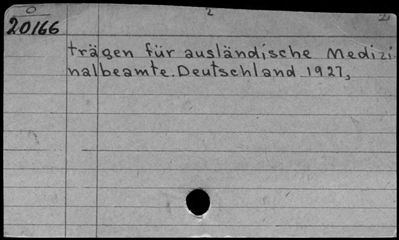 0 2
20166
trägen für ausländische Medizi-
nalbeamte. Deutschland 1927,